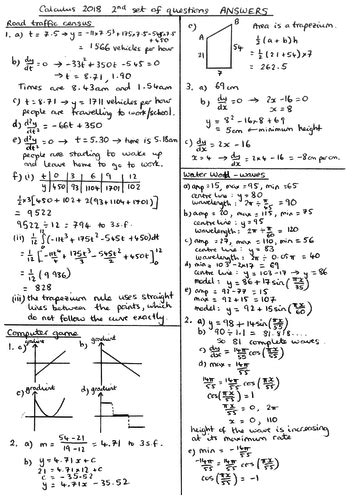 Calculus 2018 2nd set of questions ANSWERS
Road traffic census
1. a) t = 7.5 → y = -11×7.5³+175×7.5²-545×7.5
+450
= 1566 vehicles per hour
b) dy/dt = 0 → -33t²+350t-545=0
→ t = 8.71, 1.90
Times are 8.43am and 1.54am
c) t = 8.71 → y = 1711 vehicles per hour
people are travelling to work/school.
d) d²y/dt² = -66t + 350
e) d²y/dt² = 0 → t = 5.30 → here is 5.18am
People are starting to wake up
and leave home to go to work.
f) (i) t 0 3 6 9 12
y 450 93 1104 1701 102
½×3[450+102+2(93+1104+1701)]
= 9522
9522÷12 = 794 to 3s.f.
(ii) 1/12 ∫(-11t³+175t²-545t+450)dt
= 1/12 [-11t⁴/4 + 175t³/3 - 545t²/2 + 450t]
= 1/12 (9936)
= 828
(iii) the trapezium rule uses straight
lines between the points, which
do not follow the curve exactly.
Computer game
1. a) gradient
b) gradient
c) gradient
d) gradient
2. a) m = 54-21/19-12 = 4.71 to 3s.f.
b) y = 4.71x + c
21 = 4.71×12 + c
c = -35.52
y = 4.71x - 35.52
c)
A
21
7
B
54
Area is a trapezium.
½(a+b)h
= ½(21+54)×7
= 262.5
3. a) 69cm
b) dy/dx = 0 → 2x-16=0
x = 8
y = 8²-16×8+69
= 5cm ← minimum height
c) dy/dx = 2x-16
x=4 → dy/dx = 2×4-16 = -8cm per cm.
Water Wall - waves
a) amp = 15, max = 95, min = 65
centre line: y = 80
wavelength: 2π ÷ π/45 = 90
b) amp = 20, max = 115, min = 75
centre line: y = 95
wavelength: 2π ÷ π/60 = 120
c) amp = 27, max = 110, min = 56
centre line: y = 83
wavelength: 2π ÷ 0.05π = 40
d) min = 103-2×17 = 69
centre line: y = 103-17 → y = 86
e) amp = 92-77 = 15
max = 92+15 = 107
2. a) y = 98 + 14sin(πx/55)
So 81 complete waves.
c) dy/dx = 14π/55 cos(πx/55)
d) max = 14π/55
14π/55 = 14π/55 cos(πx/55)
cos(πx/55) = 1
πx/55 = 0, 2π
x = 0, 110
height of the wave is increasing
at its maximum rate
e) min = -14π/55
-14π/55 = 14π/55 cos(πx/55)
cos(πx/55) = -1